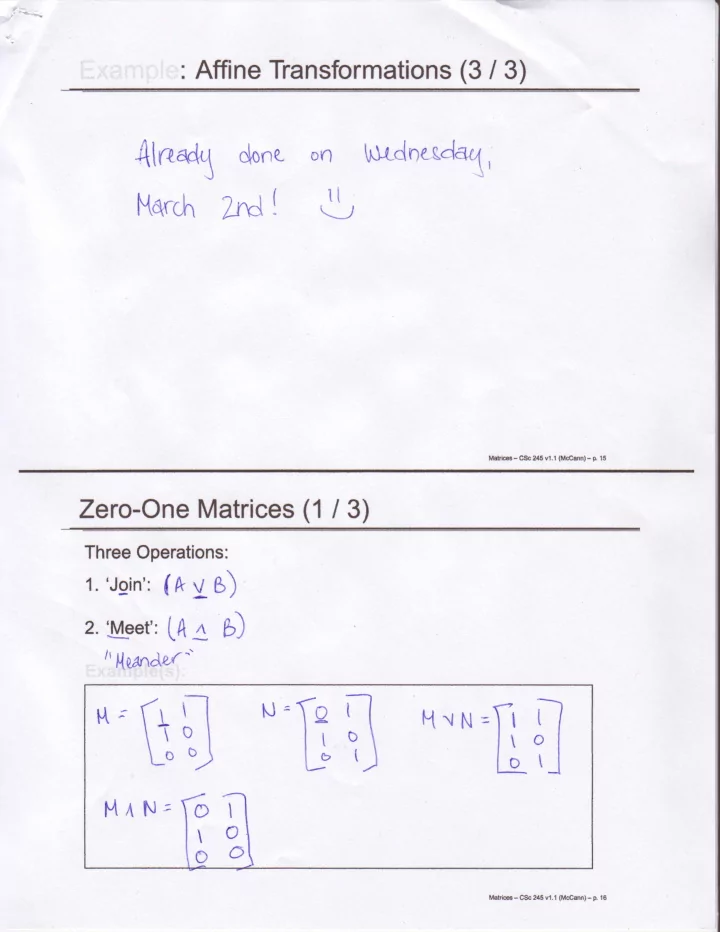 Example: Affine Transformations (3 / 3)
Already done on Wednesday,
March 2nd! :)
Matrices – CSc 245 v1.1 (McCann) – p. 15
Zero-One Matrices (1 / 3)
Three Operations:
1. ‘Join’: (A ∨ B)
2. ‘Meet’: (A ∧ B)
"Meander"
Example(s):
M = [1 1 N = [0 1 M ∨ N = [1 1
1 0 1 0 1 0
0 0] 0 1] 0 1]
M ∧ N = [0 1
1 0
0 0]
Matrices – CSc 245 v1.1 (McCann) – p. 16